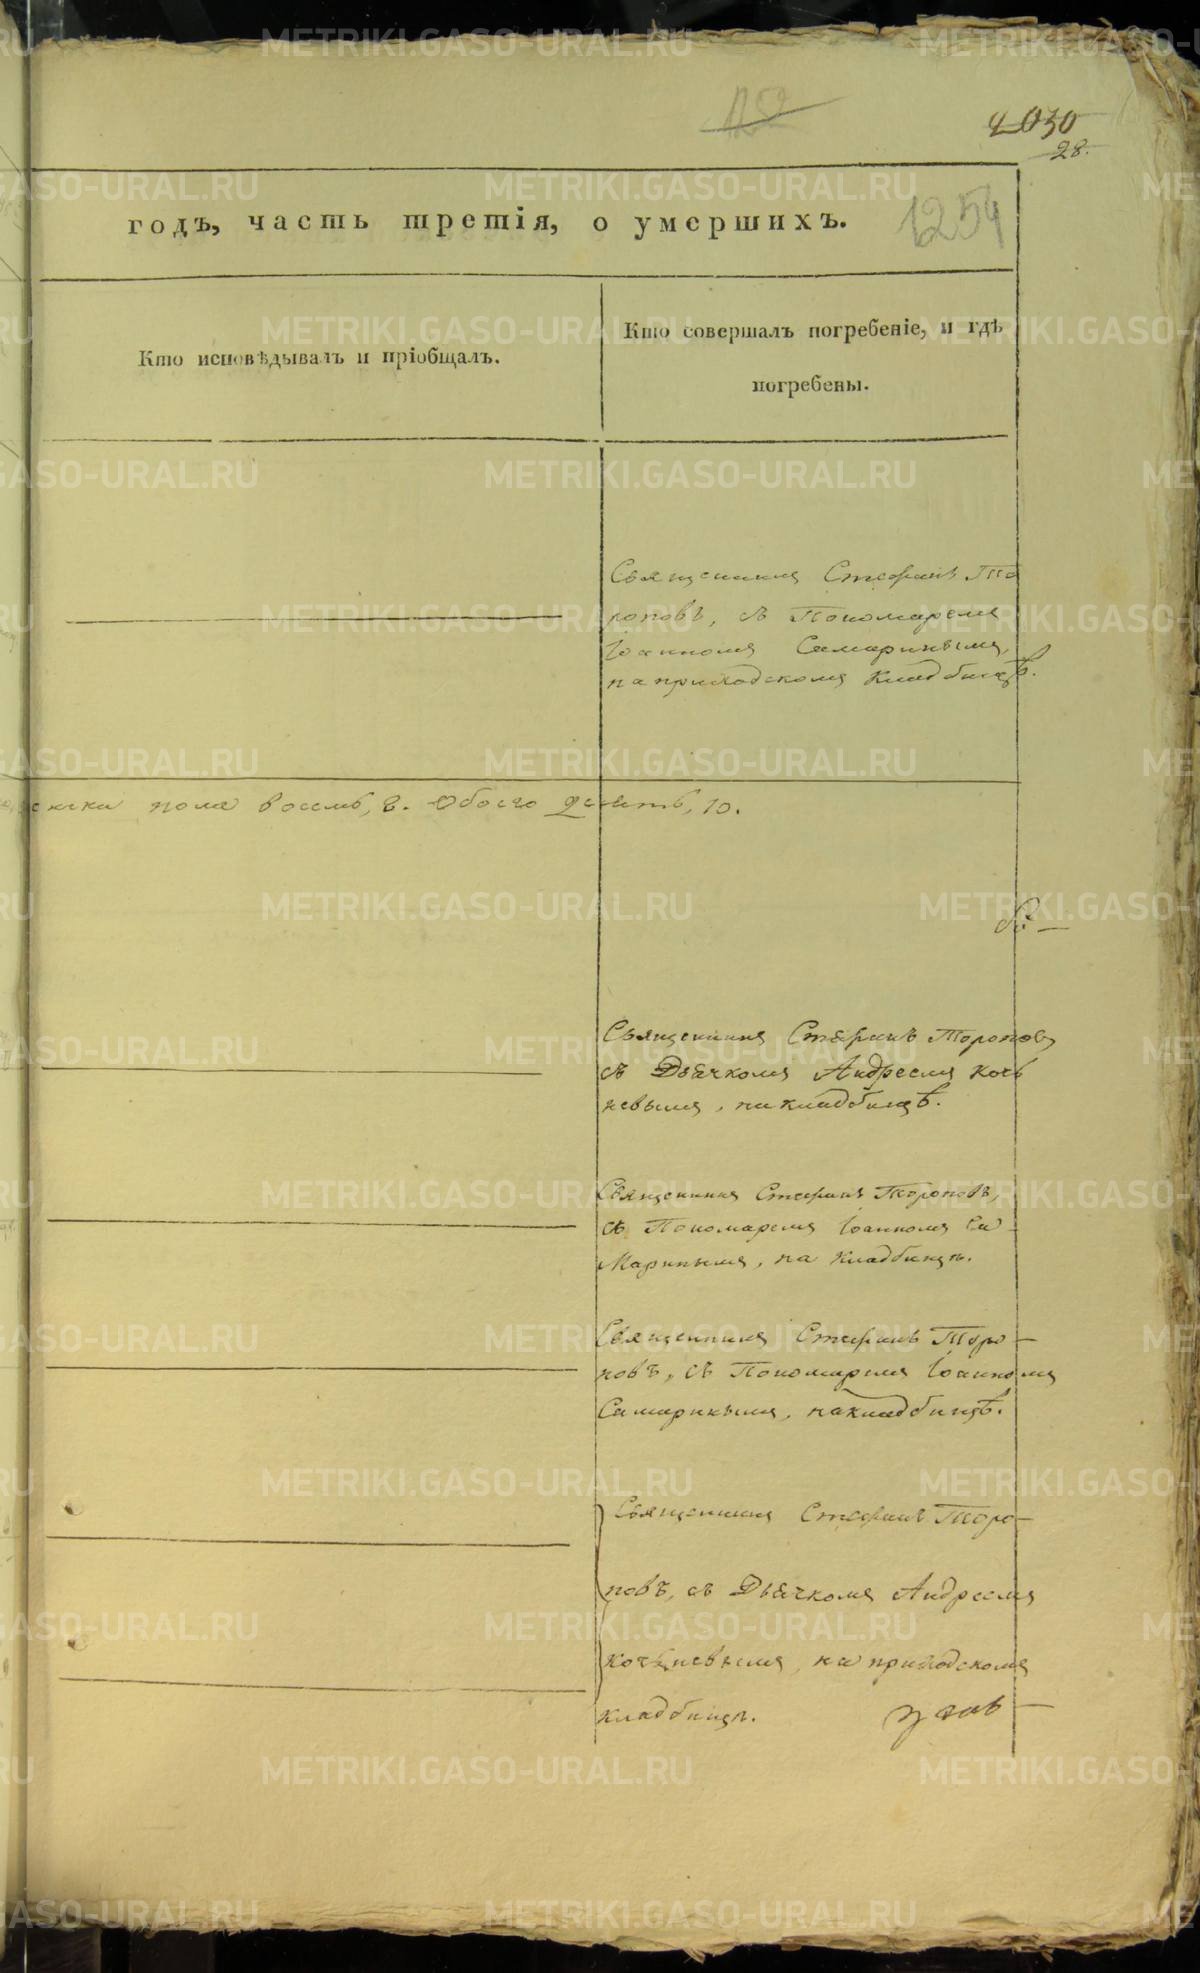 2030
28.
1254
годъ, часть третія, о умершихъ.
Кто исповѣдывалъ и пріобщалъ.
Кто совершалъ погребеніе, и гдѣ
погребены.
Священникъ Стефанъ То
роповъ, съ Пономаремъ
Іоанномъ Самаринымъ,
на приходскомъ кладбищѣ.
пола восемь, 8. Обоего десять, 10.
Священникъ Стефанъ Тороповъ
съ Дьячкомъ Андреемъ Кочь
невымъ, на кладбищѣ.
Священникъ Стефанъ Тороповъ,
съ Пономаремъ Іоанномъ Са
маринымъ, на кладбищѣ.
Священникъ Стефанъ Торо—
повъ, съ Пономаремъ Іоанномъ
Самаринымъ, на кладбищѣ.
Священникъ Стефанъ Торо—
повъ, съ Дьячкомъ Андреемъ
Кочьневымъ, на приходскомъ
кладбищѣ.
METRIKI.GASO-URAL.RU